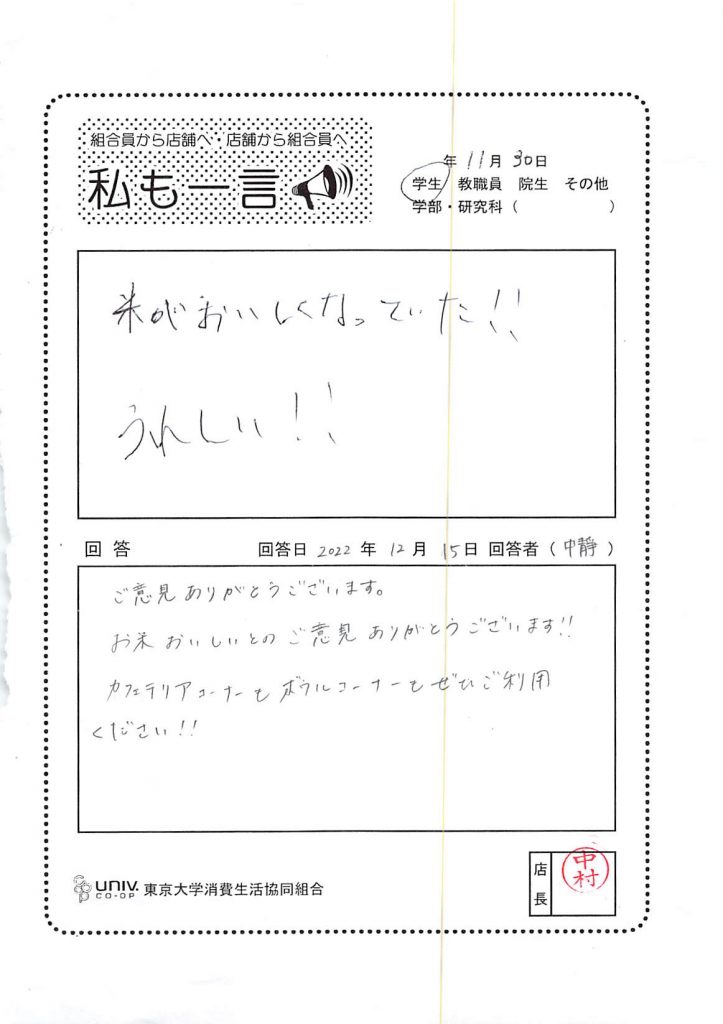 組合員から店舗へ・店舗から組合員へ
私も一言
年 11月 30日
学生 教職員 院生 その他
学部・研究科（ ）
米がおいしくなっていた!!
うれしい!!
回答 回答日 2022 年 12 月 15 日 回答者（中静）
ご意見ありがとうございます。
お米おいしいとのご意見ありがとうございます!!
カフェテリアコーナーもボウルコーナーもぜひご利用
ください!!
店長
中村
coop UNIV. CO-OP 東京大学消費生活協同組合